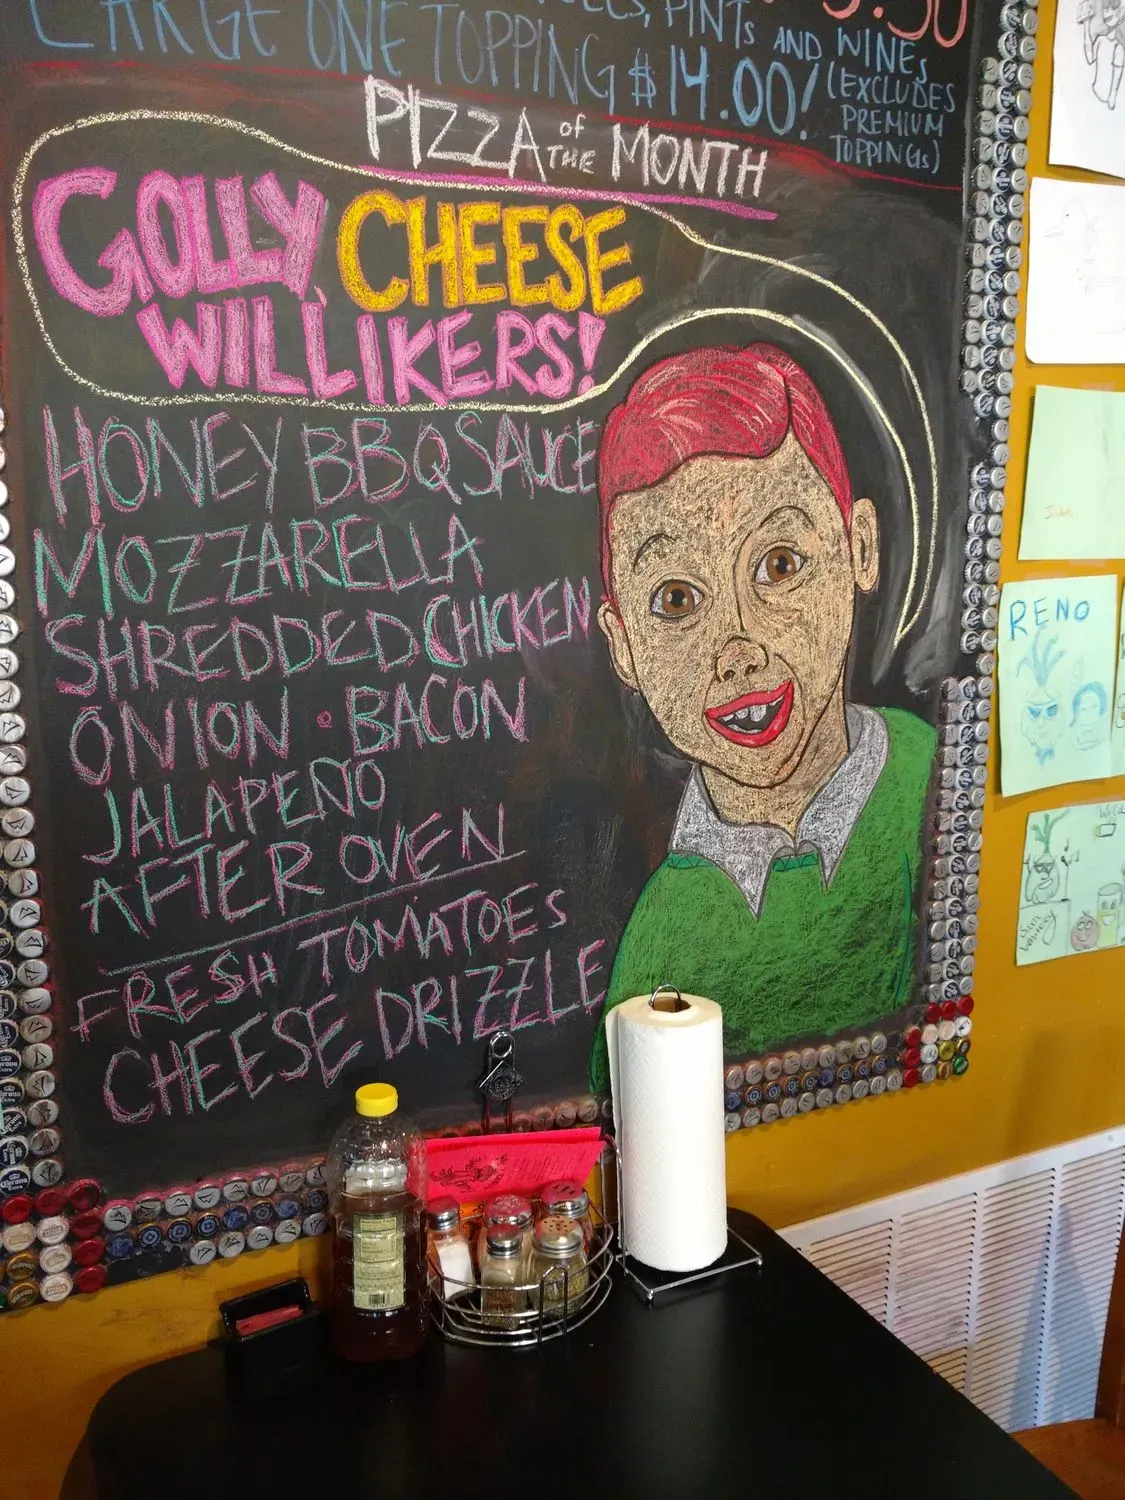 PINTS AND WINES
LARGE ONE TOPPING $14.00! (EXCLUDES PREMIUM TOPPINGS)
PIZZA OF THE MONTH
GOLLY CHEESE
WILLIKERS!
HONEY BBQ SAUCE
MOZZARELLA
SHREDDED CHICKEN
ONION • BACON
JALAPENO
AFTER OVEN
FRESH TOMATOES
CHEESE DRIZZLE
RENO